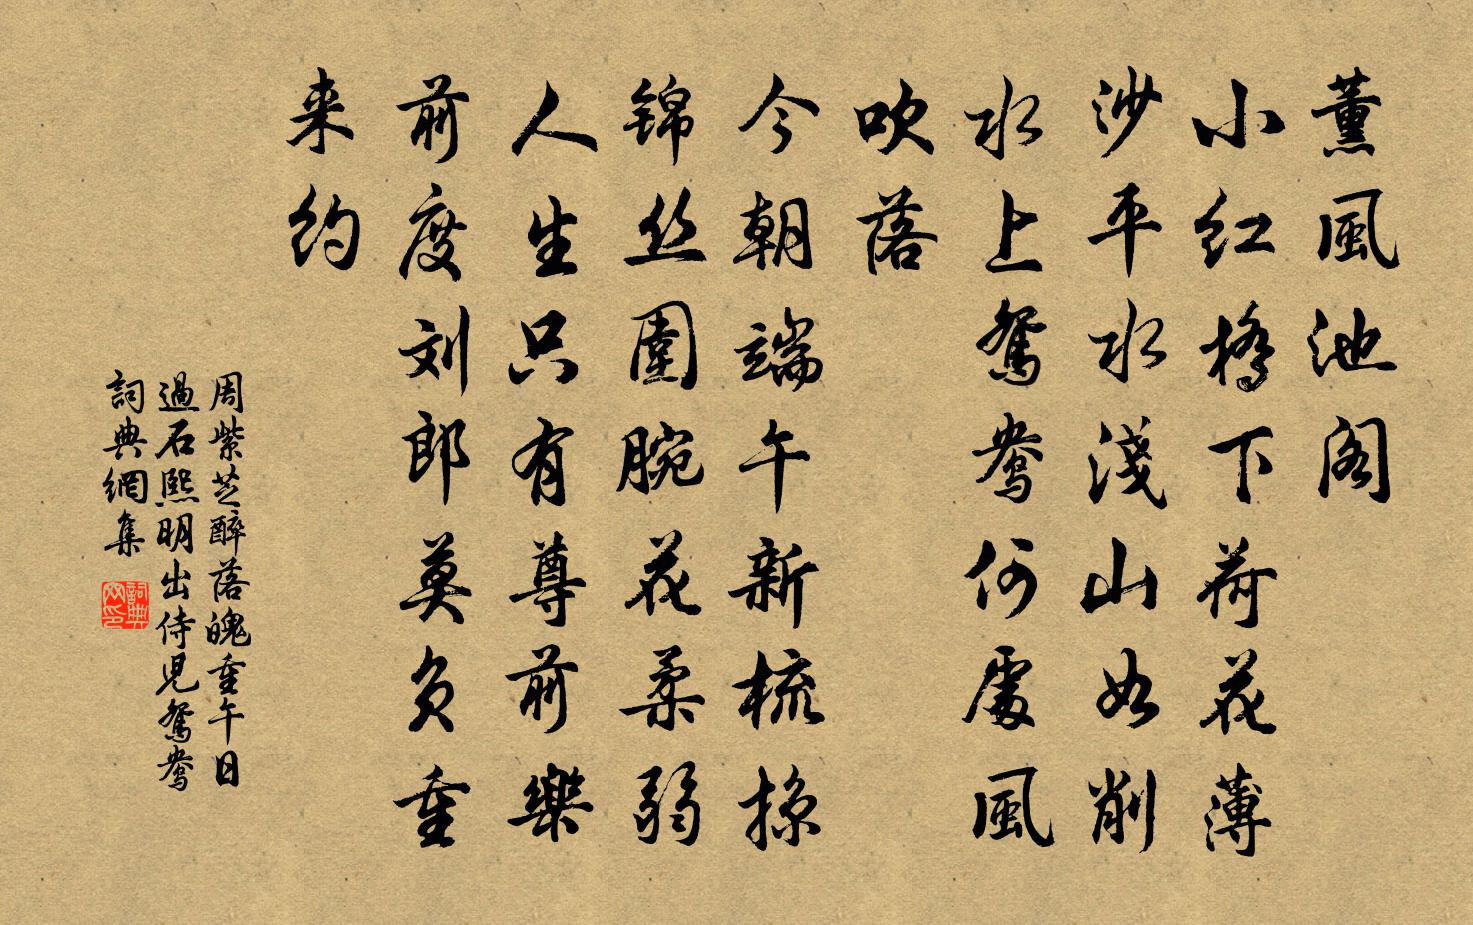 薰風池阁
小红橋下荷花薄
沙平水淺山如削
水上鸳鸯何處風
吹落
今朝端午新梳掠
锦丝圍腕花柔弱
人生只有尊前樂
前度刘郎莫负重
来约
周紫芝醉落魄重午日
過石熙明出侍児鸳鸯
詞典網集
詞典網印